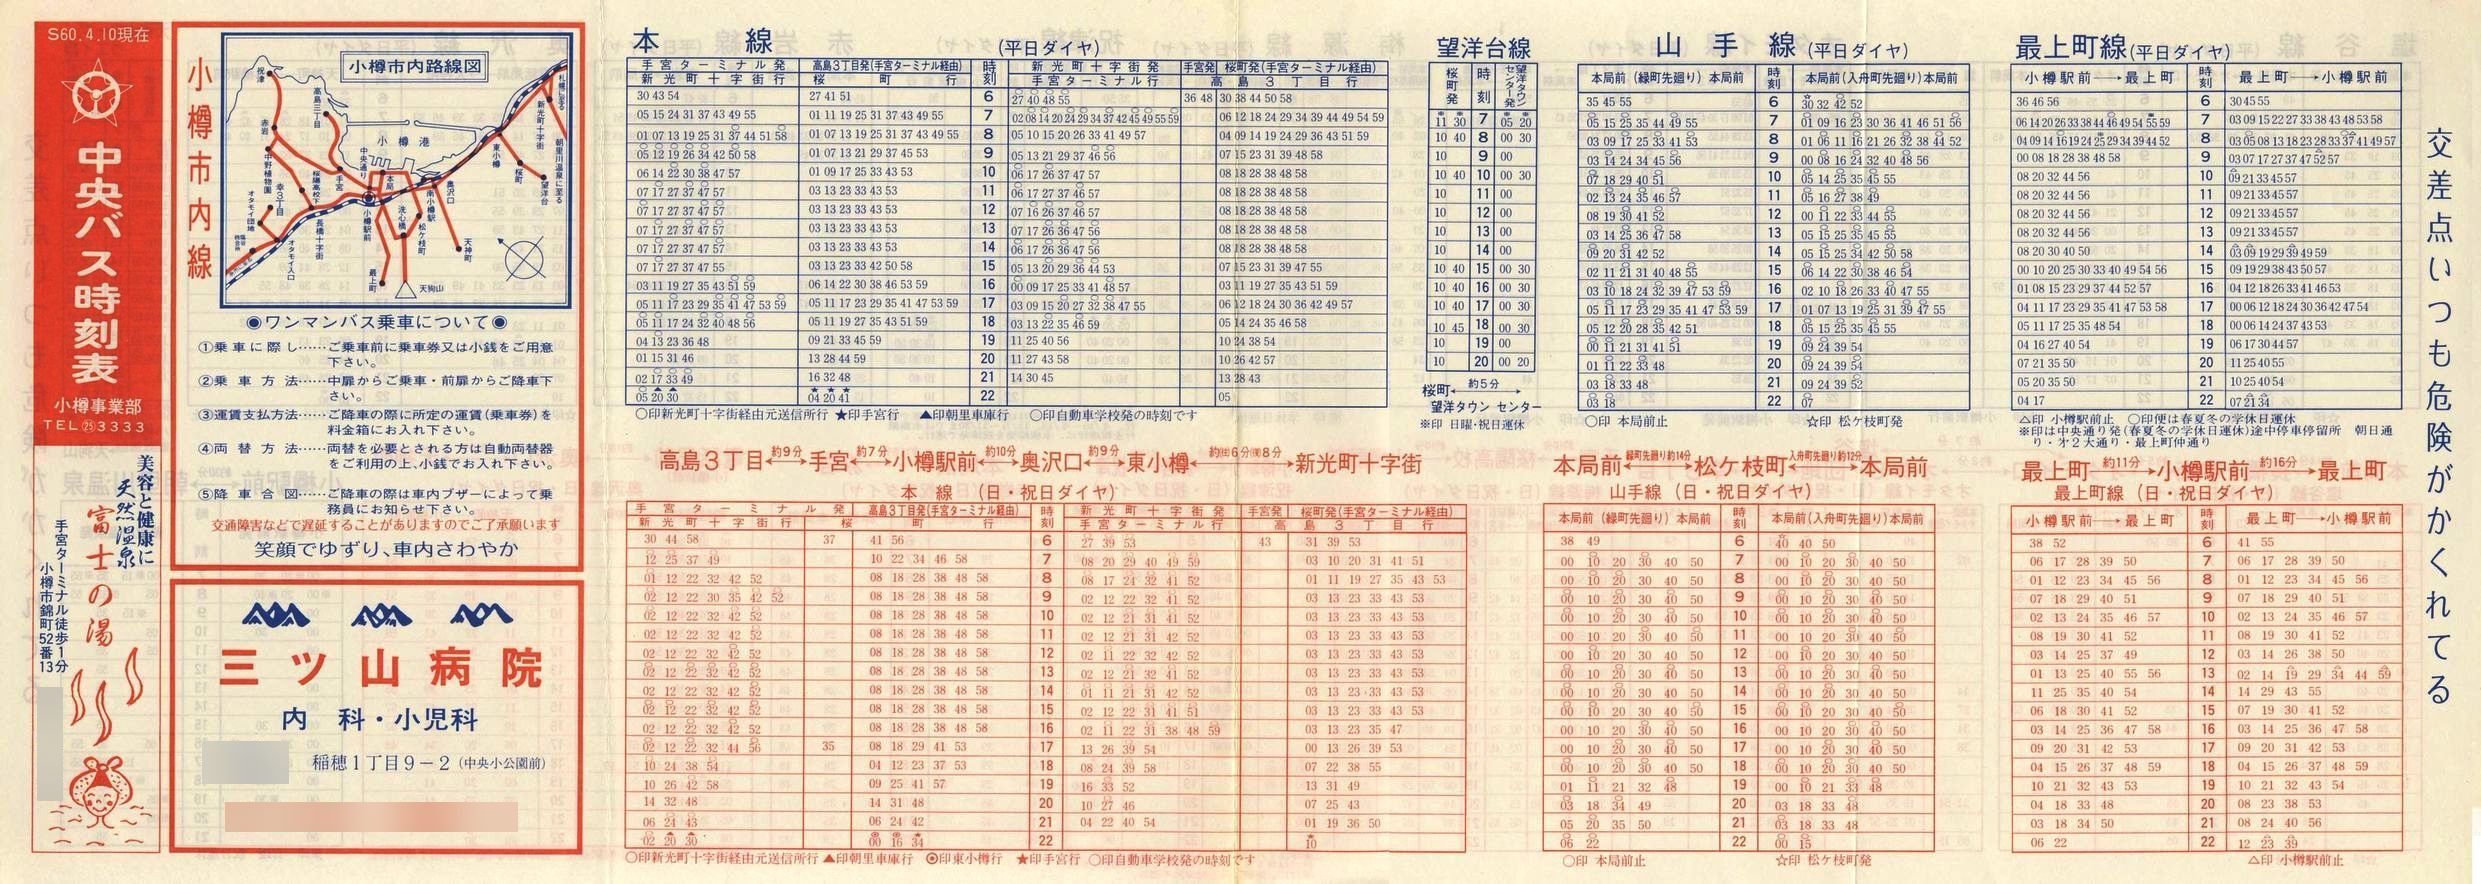 S60.4.10現在
中央バス時刻表
小樽事業部
TEL㉕3333
美容と健康に
天然温泉
富士の湯
手宮ターミナル徒歩1分
小樽市錦町52番13
小樽市内線
小樽市内路線図
祝津
高島三丁目
赤岩
小樽港
手宮
中央通り
本局
小樽駅前
東小樽
新光町十字街
桜町
望洋台
朝里川温泉に至る
札幌に至る
奥沢口
南小樽駅
洗心橋
松ケ枝町
天神町
最上町
天狗山
長橋十字街
オタモイ入口
オタモイ団地
幸3丁目
桜陽高校下
中野植物園
◉ワンマンバス乗車について◉
①乗車に際し……ご乗車前に乗車券又は小銭をご用意
下さい。
②乗車方法……中扉からご乗車・前扉からご降車下
さい。
③運賃支払方法……ご降車の際に所定の運賃(乗車券)を
料金箱にお入れ下さい。
④両替方法……両替を必要とされる方は自動両替器
をご利用の上、小銭でお入れ下さい。
⑤降車合図……ご降車の際は車内ブザーによって乗
務員にお知らせ下さい。
交通障害などで遅延することがありますのでご了承願います
笑顔でゆずり、車内さわやか
三ツ山病院
内科・小児科
稲穂1丁目9－2(中央小公園前)
本線(平日ダイヤ)
手宮ターミナル発 高島3丁目発(手宮ターミナル経由) 時刻 新光町十字街発 手宮発 桜町発(手宮ターミナル経由)
新光町十字街行 桜町行 手宮ターミナル行 高島3丁目行
30 43 54 27 41 51 6 27 40 48 55 36 48 30 38 44 50 58
05 15 24 31 37 43 49 55 01 11 19 25 31 37 43 49 55 7 02 08 14 20 24 29 34 37 42 45 49 55 59 06 12 18 24 29 34 39 44 49 54 59
01 07 13 19 25 31 37 44 51 58 01 07 13 19 25 31 37 43 49 55 8 05 10 15 20 26 33 41 49 57 04 09 14 19 24 29 36 43 51 59
05 12 19 26 34 42 50 58 01 07 13 21 29 37 45 53 9 05 13 21 29 37 46 56 07 15 23 31 39 48 58
06 14 22 30 38 47 57 01 09 17 25 33 43 53 10 06 17 26 37 47 57 08 18 28 38 48 58
07 17 27 37 47 57 03 13 23 33 43 53 11 06 17 27 37 46 57 08 18 28 38 48 58
07 17 27 37 47 57 03 13 23 33 43 53 12 07 16 26 37 46 57 08 18 28 38 48 58
07 17 27 37 47 57 03 13 23 33 43 53 13 07 17 26 36 47 56 08 18 28 38 48 58
07 17 27 37 47 57 03 13 23 33 43 53 14 06 17 26 36 47 56 08 18 28 38 48 58
07 17 27 37 47 55 03 13 23 33 42 50 58 15 05 13 20 29 36 44 53 07 15 23 31 39 47 55
03 11 19 27 35 43 51 59 06 14 22 30 38 46 53 59 16 00 09 17 25 33 41 48 57 03 11 19 27 35 43 51 59
05 11 17 23 29 35 41 47 53 59 05 11 17 23 29 35 41 47 53 59 17 03 09 15 20 27 32 38 47 55 06 12 18 24 30 36 42 49 57
05 11 17 24 32 40 48 56 05 11 19 27 35 43 51 59 18 03 13 22 35 46 59 05 14 24 35 46 58
04 13 23 36 48 09 21 33 45 59 19 11 25 40 56 10 24 38 54
01 15 31 46 13 28 44 59 20 11 27 43 58 10 26 42 57
02 17 33 49 16 32 48 21 14 30 45 13 28 43
05 20 30 04 20 41 22 05
○印新光町十字街経由元送信所行 ★印手宮行 ▲印朝里車庫行 ○印自動車学校発の時刻です
望洋台線
桜町発 時刻 望洋タウンセンター発
※11 ※30 7 ※05 ※20
10 40 8 00 30
10 9 00
10 40 10 00 30
10 11 00
10 12 00
10 13 00
10 14 00
10 40 15 00 30
10 40 16 00 30
10 40 17 00 30
10 45 18 00 30
10 19 00
10 20 00 20
桜町←約5分→
望洋タウン センター
※印 日曜・祝日運休
山手線(平日ダイヤ)
本局前(緑町先廻り)本局前 時刻 本局前(入舟町先廻り)本局前
35 45 55 6 30 32 42 52
05 15 25 35 44 49 55 7 01 09 16 23 30 36 41 46 51 56
03 09 17 25 33 41 53 8 01 06 11 16 21 26 32 38 44 52
03 14 24 34 45 56 9 00 08 16 24 32 40 48 56
07 18 29 40 51 10 05 14 25 35 45 55
02 13 24 35 46 57 11 05 16 27 38 49
08 19 30 41 52 12 00 11 22 33 44 55
03 14 25 36 47 58 13 05 15 25 35 45 55
09 20 31 42 52 14 05 15 25 34 42 50 58
02 11 21 31 40 48 55 15 06 14 22 30 38 46 54
03 10 18 24 32 39 47 53 59 16 02 10 18 26 33 40 47 55
05 11 17 23 29 35 41 47 53 59 17 01 07 13 19 25 31 39 47 55
05 12 20 28 35 42 51 18 05 15 25 35 45 55
00 11 21 31 41 51 19 09 24 39 54
01 11 22 33 48 20 09 24 39 54
03 18 33 48 21 09 24 39 52
03 18 22 07
○印 本局前止 ☆印 松ケ枝町発
最上町線(平日ダイヤ)
小樽駅前→最上町 時刻 最上町→小樽駅前
36 46 56 6 30 45 55
06 14 20 26 33 38 44 46 49 54 55 59 7 03 09 15 22 27 33 38 43 48 53 58
04 09 14 16 19 24 25 29 34 39 44 52 8 03 05 08 13 18 23 28 33 37 41 49 57
00 08 18 28 38 48 58 9 03 07 17 27 37 47 52 57
08 20 32 44 56 10 09 21 33 45 57
08 20 32 44 56 11 09 21 33 45 57
08 20 32 44 56 12 09 21 33 45 57
08 20 32 44 56 13 09 21 33 45 57
08 20 30 40 50 14 03 09 19 29 39 49 59
00 10 20 25 30 33 40 49 54 56 15 09 19 29 38 43 50 57
01 08 15 23 29 37 44 52 57 16 04 12 18 26 33 41 46 53
04 11 17 23 29 35 41 47 53 58 17 00 06 12 18 24 30 36 42 47 54
05 11 17 25 35 48 54 18 00 06 14 24 37 43 53
04 16 27 40 54 19 06 17 30 44 57
07 21 35 50 20 11 25 40 55
05 20 35 50 21 10 25 40 54
04 17 22 07 21 34
△印 小樽駅前止 ○印便は春夏冬の学休日運休
※印は中央通り発(春夏冬の学休日運休)途中停車停留所 朝日通
り・オ2大通り・最上町仲通り
交差点いつも危険がかくれてる
高島3丁目←約9分→手宮←約7分→小樽駅前←約10分→奥沢口←約9分→東小樽←約6分8分→新光町十字街
本線(日・祝日ダイヤ)
手宮ターミナル発 高島3丁目発(手宮ターミナル経由) 時刻 新光町十字街発 手宮発 桜町発(手宮ターミナル経由)
新光町十字街行 桜町行 手宮ターミナル行 高島3丁目行
30 44 58 37 41 56 6 27 39 53 43 31 39 53
12 25 37 49 10 22 34 46 58 7 08 20 29 40 49 59 03 10 20 31 41 51
01 12 22 32 42 52 08 18 28 38 48 58 8 08 17 24 32 41 52 01 11 19 27 35 43 53
02 12 22 30 35 42 52 08 18 28 38 48 58 9 02 12 22 32 41 52 03 13 23 33 43 53
02 12 22 32 42 52 08 18 28 38 48 58 10 02 12 21 31 42 52 03 13 23 33 43 53
02 12 22 32 42 52 08 18 28 38 48 58 11 02 12 21 31 42 52 03 13 23 33 43 53
02 12 22 32 42 52 08 18 28 38 48 58 12 02 11 22 32 42 52 03 13 23 33 43 53
02 12 22 32 42 52 08 18 28 38 48 58 13 02 12 21 32 42 51 03 13 23 33 43 53
02 12 22 32 42 52 08 18 28 38 48 58 14 01 11 21 31 42 52 03 13 23 33 43 53
02 12 22 32 42 52 08 18 28 38 48 58 15 02 12 22 31 41 51 03 13 23 33 43 53
02 12 22 32 42 52 08 18 28 38 48 58 16 02 11 22 31 38 48 59 03 13 23 35 47
02 12 22 32 44 56 35 08 18 29 41 53 17 13 26 39 54 00 13 26 39 53
10 24 38 54 04 12 23 37 53 18 08 24 39 58 07 22 38 55
10 26 42 58 09 25 41 57 19 16 33 52 13 31 49
14 32 48 14 31 48 20 10 27 46 07 25 43
06 24 43 06 24 42 21 04 22 40 54 01 19 36 50
02 20 30 00 16 34 22 10
○印新光町十字街経由元送信所行 ▲印朝里車庫行 ◉印東小樽行 ★印手宮行 ○印自動車学校発の時刻です
本局前←緑町先廻り約14分→松ケ枝町←入舟町先廻り約12分→本局前
山手線(日・祝日ダイヤ)
本局前(緑町先廻り)本局前 時刻 本局前(入舟町先廻り)本局前
38 49 6 40 40 50
00 10 20 30 40 50 7 00 10 20 30 40 50
00 10 20 30 40 50 8 00 10 20 30 40 50
00 10 20 30 40 50 9 00 10 20 30 40 50
00 10 20 30 40 50 10 00 10 20 30 40 50
00 10 20 30 40 50 11 00 10 20 30 40 50
00 10 20 30 40 50 12 00 10 20 30 40 50
00 10 20 30 40 50 13 00 10 20 30 40 50
00 10 20 30 40 50 14 00 10 20 30 40 50
00 10 20 30 40 50 15 00 10 20 30 40 50
00 10 20 30 40 50 16 00 10 20 30 40 50
00 10 20 30 40 50 17 00 10 20 30 40 50
00 10 20 30 40 50 18 00 10 20 30 40 50
01 11 21 32 48 19 00 10 21 33 48
03 18 34 49 20 03 18 33 48
05 20 35 50 21 03 18 33 48
06 22 22 00 15
○印 本局前止 ☆印 松ケ枝町発
最上町←約11分→小樽駅前←約16分→最上町
最上町線(日・祝日ダイヤ)
小樽駅前→最上町 時刻 最上町→小樽駅前
38 52 6 41 55
06 17 28 39 50 7 06 17 28 39 50
01 12 23 34 45 56 8 01 12 23 34 45 56
07 18 29 40 51 9 07 18 29 40 51
02 13 24 35 46 57 10 02 13 24 35 46 57
08 19 30 41 52 11 08 19 30 41 52
03 14 25 37 49 12 03 14 26 38 50
01 13 25 40 55 56 13 02 14 19 29 34 44 59
11 25 35 40 54 14 14 29 43 55
06 18 30 41 52 15 07 19 30 41 52
03 14 25 36 47 58 16 03 14 25 36 47 58
09 20 31 42 53 17 09 20 31 42 53
04 15 26 37 48 59 18 04 15 26 37 48 59
10 21 32 43 53 19 10 21 32 43 54
04 18 33 48 20 08 23 38 53
03 18 34 50 21 08 24 40 56
06 22 22 12 23 39
△印 小樽駅前止